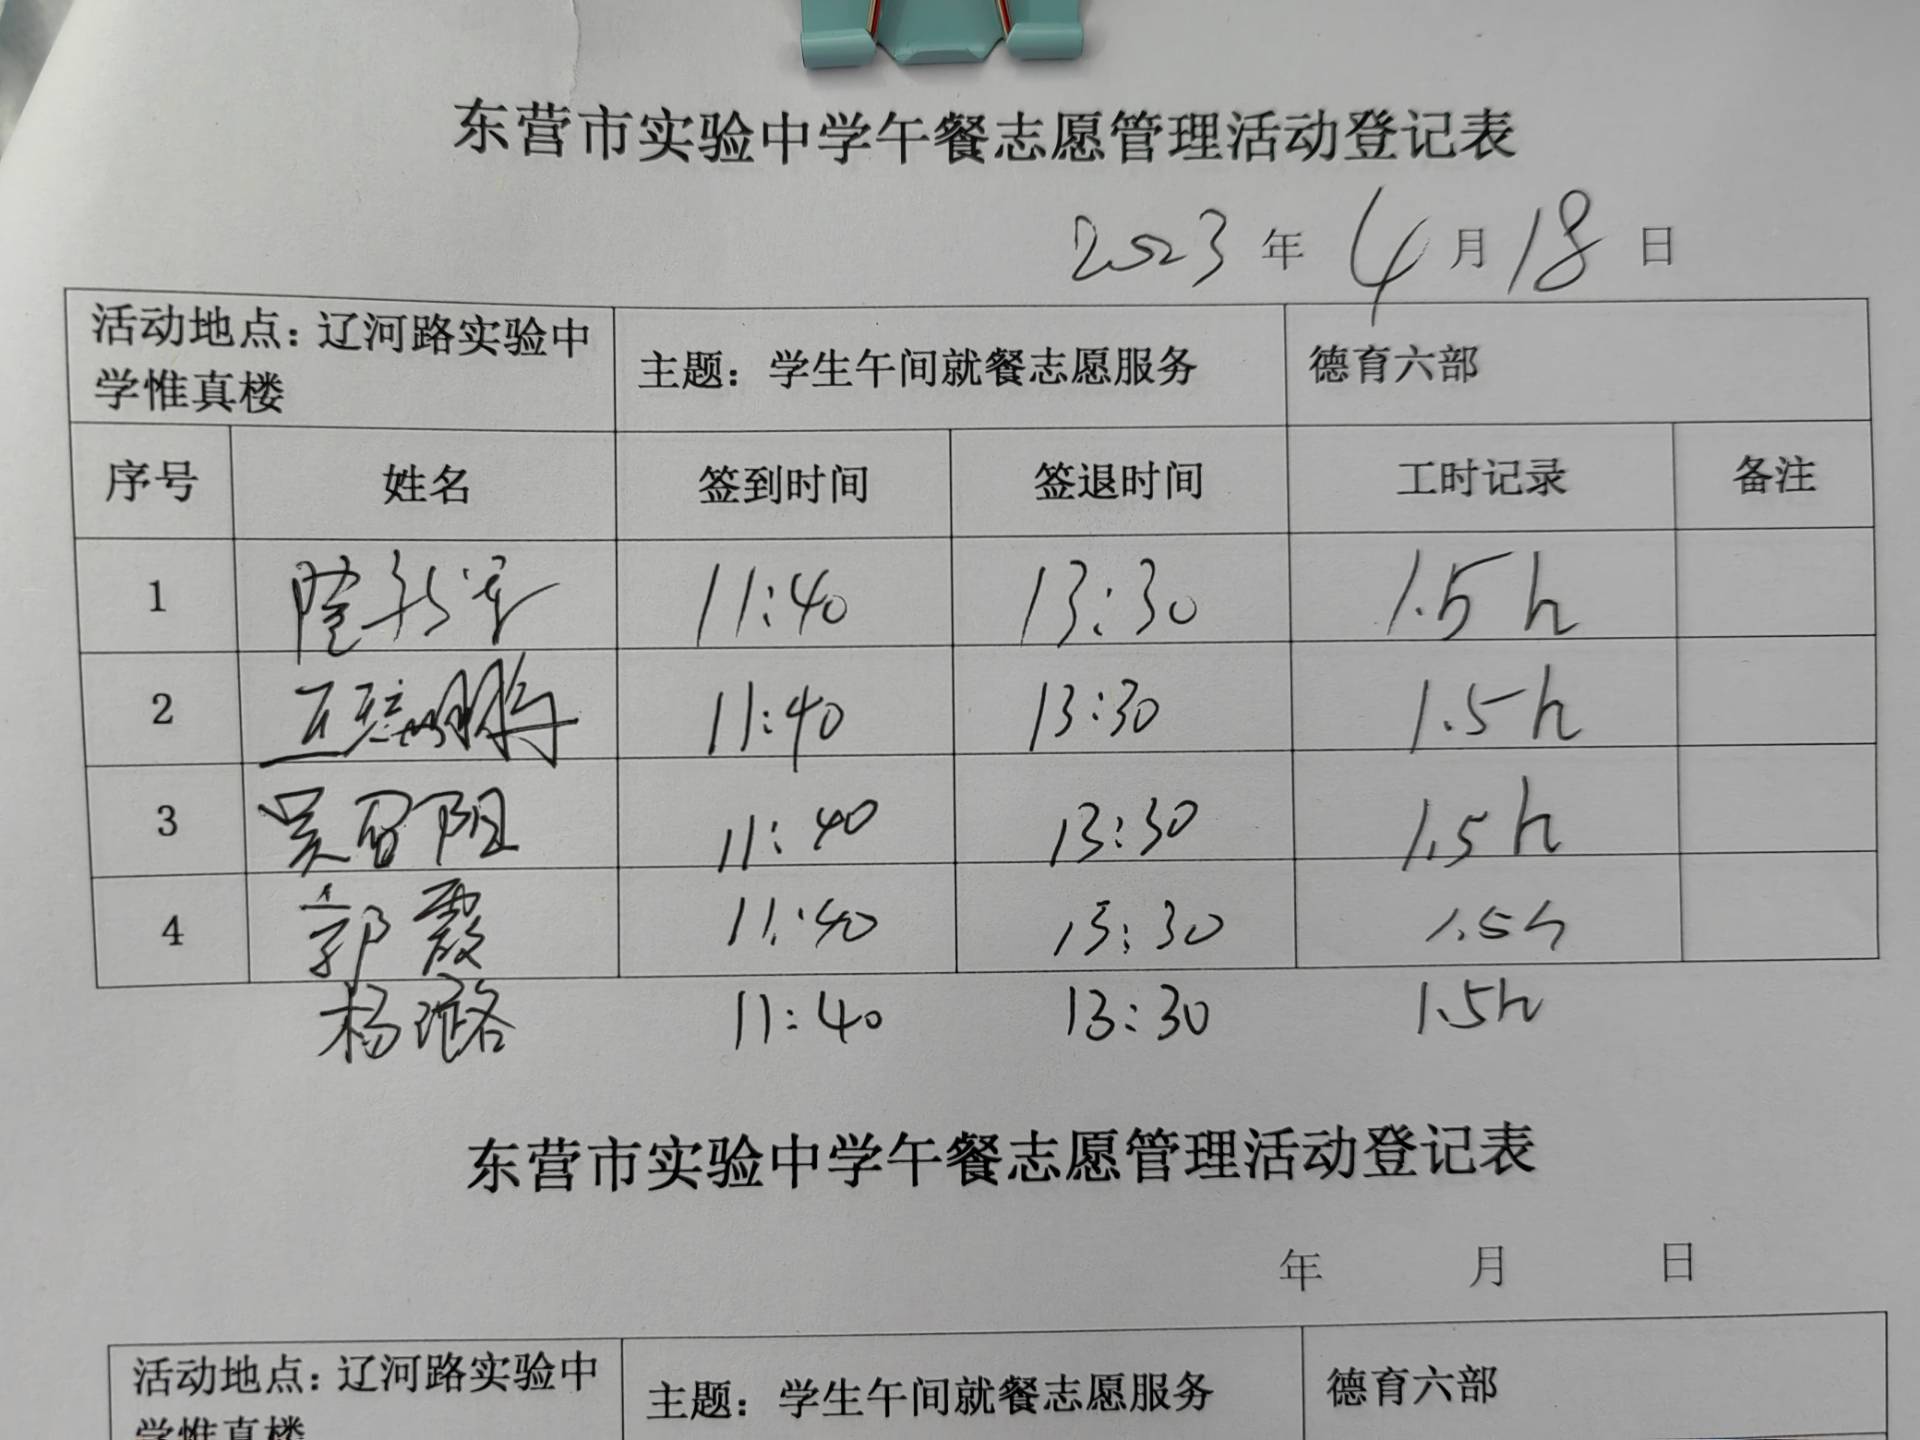 东营市实验中学午餐志愿管理活动登记表
2023 年 4 月 18 日
活动地点：辽河路实验中学惟真楼 主题：学生午间就餐志愿服务 德育六部
序号 姓名 签到时间 签退时间 工时记录 备注
1 11:40 13:30 1.5h
2 11:40 13:30 1.5h
3 11:40 13:30 1.5h
4 郭霞 11:40 13:30 1.5h
杨璐 11:40 13:30 1.5h
东营市实验中学午餐志愿管理活动登记表
年 月 日
活动地点：辽河路实验中学惟真楼 主题：学生午间就餐志愿服务 德育六部